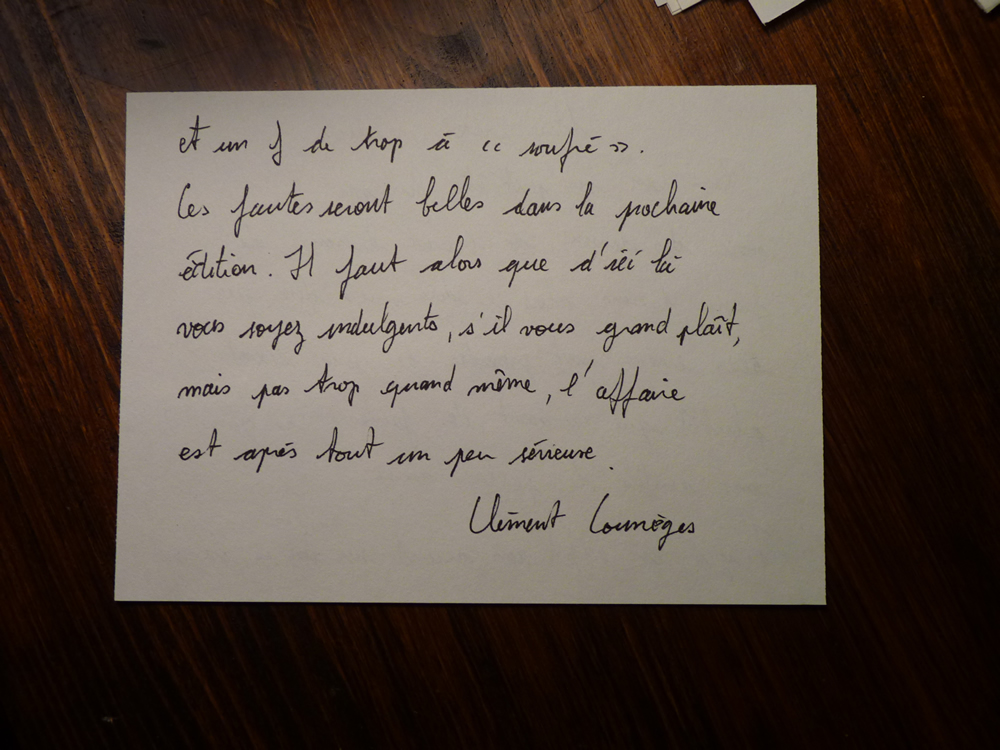 et un f de trop à « soufre ».
Ces fautes seront belles dans la prochaine
édition. Il faut alors que d'ici là
vous soyez indulgents, s'il vous grand plaît,
mais pas trop quand même, l'affaire
est après tout un peu sérieuse.
Clément